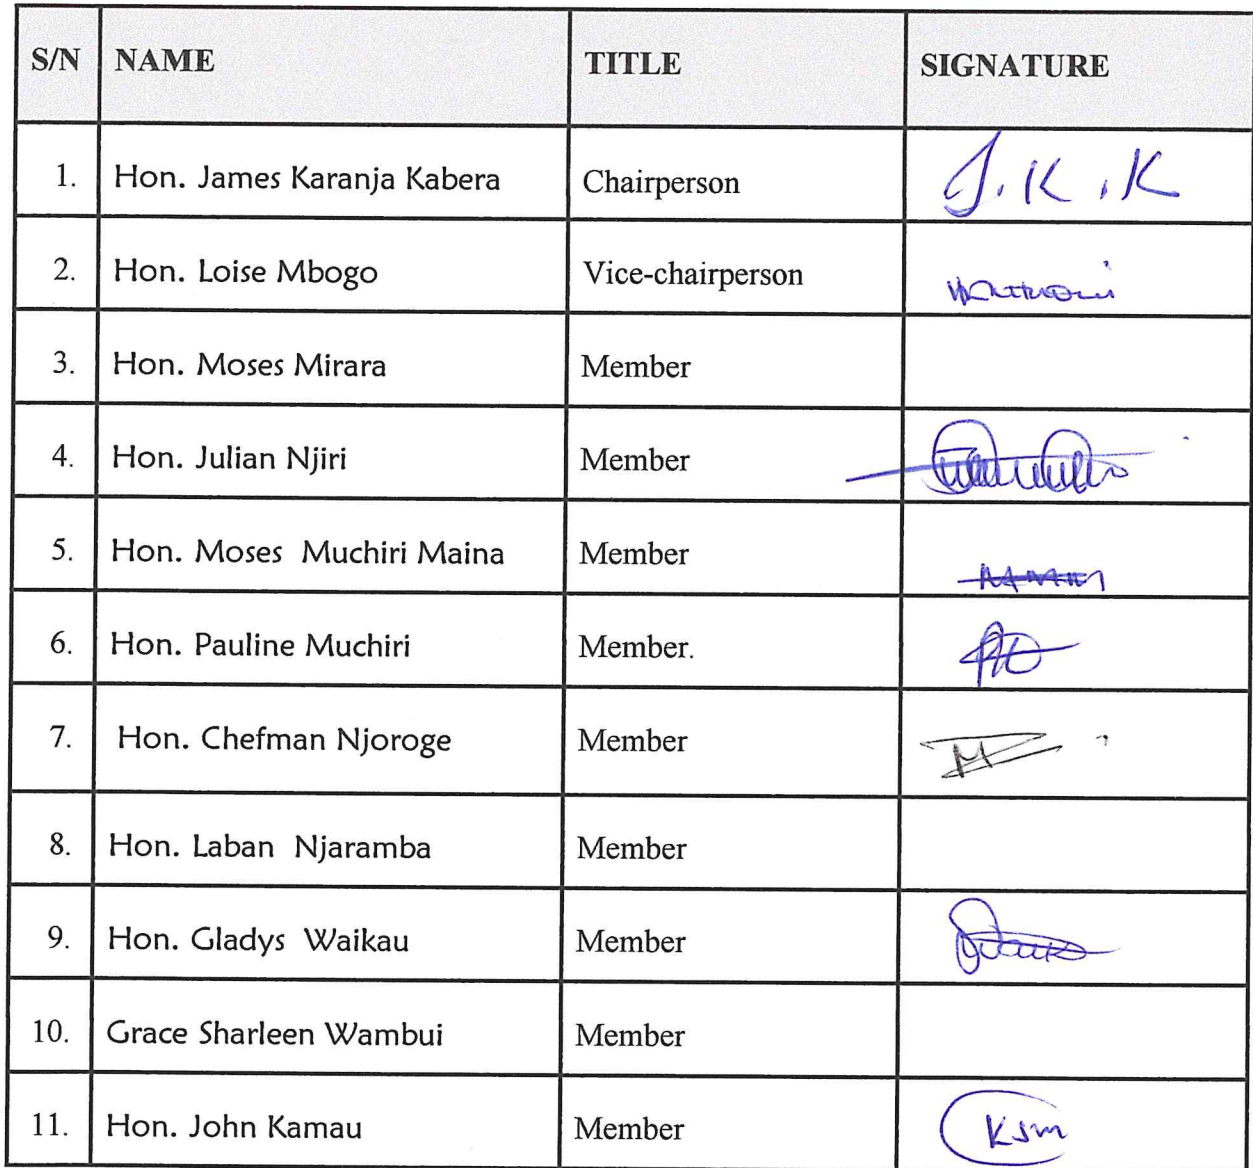 S/N NAME TITLE SIGNATURE
1. Hon. James Karanja Kabera Chairperson J.K.K
2. Hon. Loise Mbogo Vice-chairperson
3. Hon. Moses Mirara Member
4. Hon. Julian Njiri Member
5. Hon. Moses Muchiri Maina Member
6. Hon. Pauline Muchiri Member.
7. Hon. Chefman Njoroge Member
8. Hon. Laban Njaramba Member
9. Hon. Gladys Waikau Member
10. Grace Sharleen Wambui Member
11. Hon. John Kamau Member Ksm